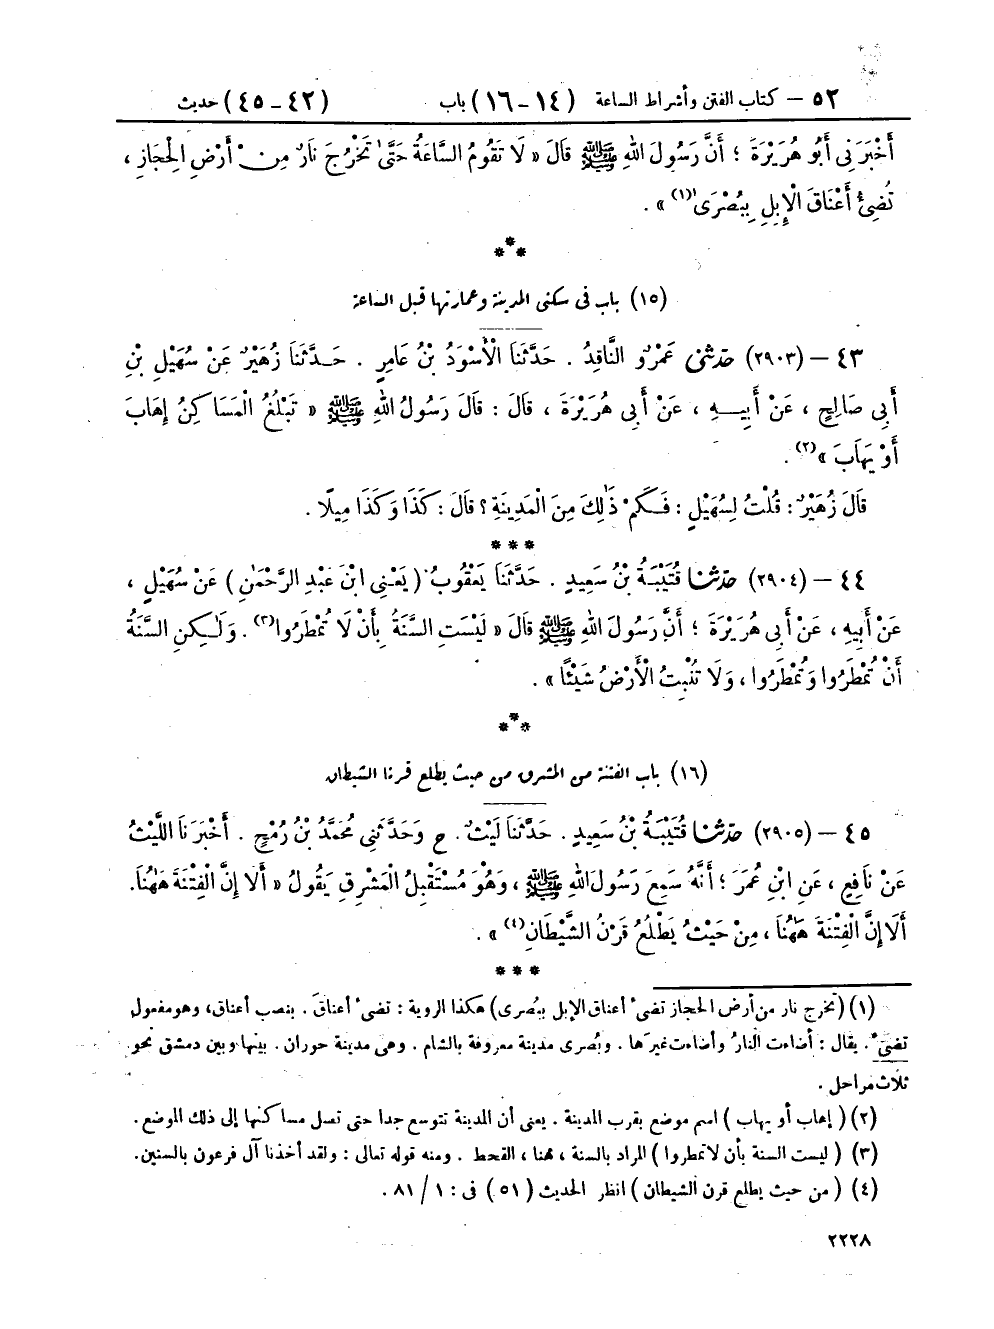 ٥٢ – كتاب الفتن وأشراط الساعة (١٤-١٦) باب (٤٢-٤٥) حديث
أَخْبَرَنِي أَبُو هُرَيْرَةَ ؛ أَنَّ رَسُولَ اللهِ ﷺ قَالَ « لَا تَقُومُ السَّاعَةُ حَتَّىٰ تَخْرُجَ نَارٌ مِنْ أَرْضِ الْحِجَازِ ،
تُضِيءُ أَعْنَاقَ الْإِبِلِ بِبُصْرَىٰ(١) » .
***
(١٥) باب في سكنى المدينة وعمارتها قبل الساعة
٤٣ – (٢٩٠٣) حَدَّثَنِي عَمْرٌو النَّاقِدُ . حَدَّثَنَا الْأَسْوَدُ بْنُ عَامِرٍ . حَدَّثَنَا زُهَيْرٌ عَنْ سُهَيْلِ بْنِ
أَبِي صَالِحٍ ، عَنْ أَبِيهِ ، عَنْ أَبِي هُرَيْرَةَ ، قَالَ : قَالَ رَسُولُ اللهِ ﷺ « تَبْلُغُ الْمَسَاكِنُ إِهَابَ
أَوْ يَهَابَ »(٢) .
قَالَ زُهَيْرٌ : قُلْتُ لِسُهَيْلٍ : فَكَمْ ذَٰلِكَ مِنَ الْمَدِينَةِ ؟ قَالَ : كَذَا وَكَذَا مِيلًا .
***
٤٤ – (٢٩٠٤) حَدَّثَنَا قُتَيْبَةُ بْنُ سَعِيدٍ . حَدَّثَنَا يَعْقُوبُ ( يَعْنِي ابْنَ عَبْدِ الرَّحْمَٰنِ ) عَنْ سُهَيْلٍ ،
عَنْ أَبِيهِ ، عَنْ أَبِي هُرَيْرَةَ ؛ أَنَّ رَسُولَ اللهِ ﷺ قَالَ « لَيْسَتِ السَّنَةُ بِأَنْ لَا تُمْطَرُوا(٣) . وَلَٰكِنِ السَّنَةُ
أَنْ تُمْطَرُوا وَتُمْطَرُوا ، وَلَا تُنْبِتُ الْأَرْضُ شَيْئًا » .
***
(١٦) باب الفتنة من المشرق من حيث يطلع قرنا الشيطان
٤٥ – (٢٩٠٥) حَدَّثَنَا قُتَيْبَةُ بْنُ سَعِيدٍ . حَدَّثَنَا لَيْثٌ . ح وَحَدَّثَنِي مُحَمَّدُ بْنُ رُمْحٍ . أَخْبَرَنَا اللَّيْثُ
عَنْ نَافِعٍ ، عَنِ ابْنِ عُمَرَ ؛ أَنَّهُ سَمِعَ رَسُولَ اللهِ ﷺ ، وَهُوَ مُسْتَقْبِلُ الْمَشْرِقِ يَقُولُ « أَلَا إِنَّ الْفِتْنَةَ هَٰهُنَا.
أَلَا إِنَّ الْفِتْنَةَ هَٰهُنَا ، مِنْ حَيْثُ يَطْلُعُ قَرْنُ الشَّيْطَانِ(٤) » .
***
(١) ( تخرج نار من أرض الحجاز تضيءُ أعناق الإبل ببُصرى) هكذا الروية : تضيءُ أعناقَ . بنصب أعناق، وهو مفعول
تضيءُ . يقال : أضاءت النارُ وأضاءت غيرَها . وبُصرى مدينة معروفة بالشام . وهي مدينة حوران . بينها وبين دمشق نحو
ثلاث مراحل .
(٢) ( إهاب أو يهاب ) اسم موضع بقرب المدينة . يعني أن المدينة تتوسع جدا حتى تصل مساكنها إلى ذلك الموضع .
(٣) ( ليست السنة بأن لا تمطروا ) المراد بالسنة ، هنا ، القحط . ومنه قوله تعالى : ولقد أخذنا آل فرعون بالسنين.
(٤) ( من حيث يطلع قرن الشيطان ) انظر الحديث (٥١) في : ١ / ٨١ .
٢٢٢٨